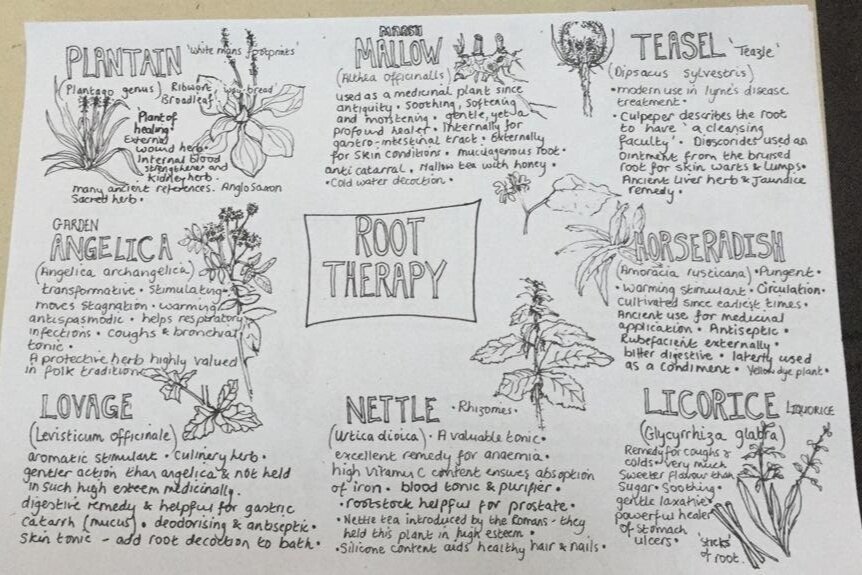 PLANTAIN 'white mans footprints'
(Plantago genus) Ribwort 'way bread'
Broadleaf
Plant of
healing.
External
wound herb.
Internal blood
strengthener and
kidney herb.
many ancient references. Anglo Saxon
Sacred herb.
MARSH
MALLOW
(Althea officinalis)
used as a medicinal plant since
antiquity. Soothing, Softening
and moistening. gentle, yet a
profound healer. Internally for
gastro-intestinal tract. Externally
for Skin conditions. mucilagenous root.
anti catarral. Mallow tea with honey.
Cold water decoction.
TEASEL 'Teazle'
(Dipsacus sylvestris)
• modern use in lyme's disease
treatment.
• Culpeper describes the root
to have 'a cleansing
faculty'. Dioscorides used an
Ointment from the bruised
root for skin warts & lumps.
Ancient Liver herb & Jaundice
remedy.
GARDEN
ANGELICA
(Angelica archangelica)
transformative. Stimulating.
moves stagnation. warming
antispasmodic. helps respiratory
infections. coughs & bronchial
tonic.
A protective herb highly valued
in folk traditions
ROOT
THERAPY
HORSERADISH
(Amoracia rusticana). Pungent.
• Warming stimulant. Circulation.
Cultivated since earliest times.
Ancient use for medicinal
application. Antiseptic.
Rubefacient externally.
bitter digestive. laterly used
as a condiment. Yellow dye plant.
LOVAGE
(Levisticum officinale)
aromatic stimulant. Culinery herb.
gentler action than angelica & not held
in such high esteem medicinally.
digestive remedy & helpful for gastric
catarrh (mucus). deodorising & antiseptic.
skin tonic - add root decoction to bath.
NETTLE • Rhizomes.
(Urtica dioica). A valuable tonic.
excellent remedy for anaemia.
high vitamin C content ensures absoption
of iron. blood tonic & purifier.
• rootstock helpful for prostate.
• Nettle tea introduced by the Romans - they
held this plant in high esteem.
• Silicone content aids healthy hair & nails.
LICORICE LIQUORICE
(Glycyrrhiza glabra)
Remedy for coughs &
colds. very much
Sweeter flavour than
Sugar. Soothing.
gentle laxative.
powerful healer
of stomach
ulcers.
'sticks'
of root.